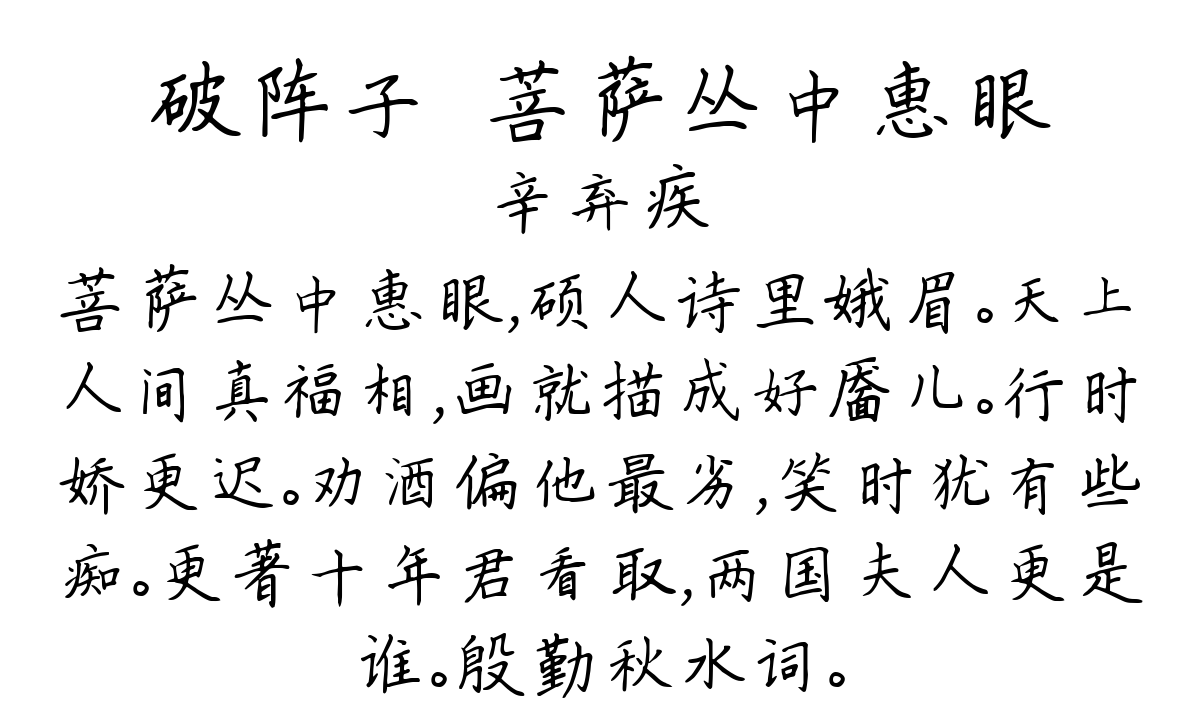 破阵子 菩萨丛中惠眼
辛弃疾
菩萨丛中惠眼,硕人诗里娥眉。天上
人间真福相,画就描成好靥儿。行时
娇更迟。劝酒偏他最劣,笑时犹有些
痴。更著十年君看取,两国夫人更是
谁。殷勤秋水词。